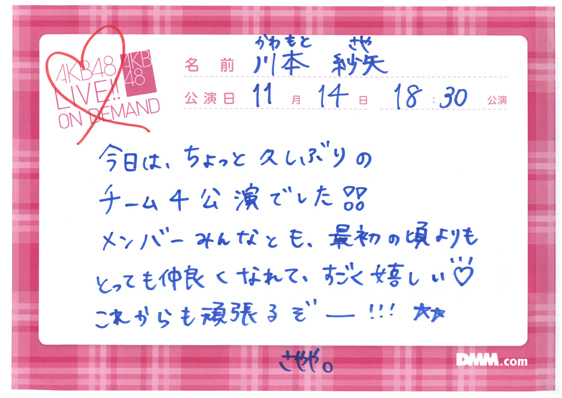 AKB48
LIVE!!
ON DEMAND
AKB
48
かわもと さや
名前 川本 紗矢
公演日 11月 14日 18:30 公演
今日は、ちょっと久しぶりの
チーム4公演でした
メンバーみんなとも、最初の頃よりも
とっても仲良くなれて、すごく嬉しい♡
これからも頑張るぞー!!! ☆☆
さやや。
DMM.com